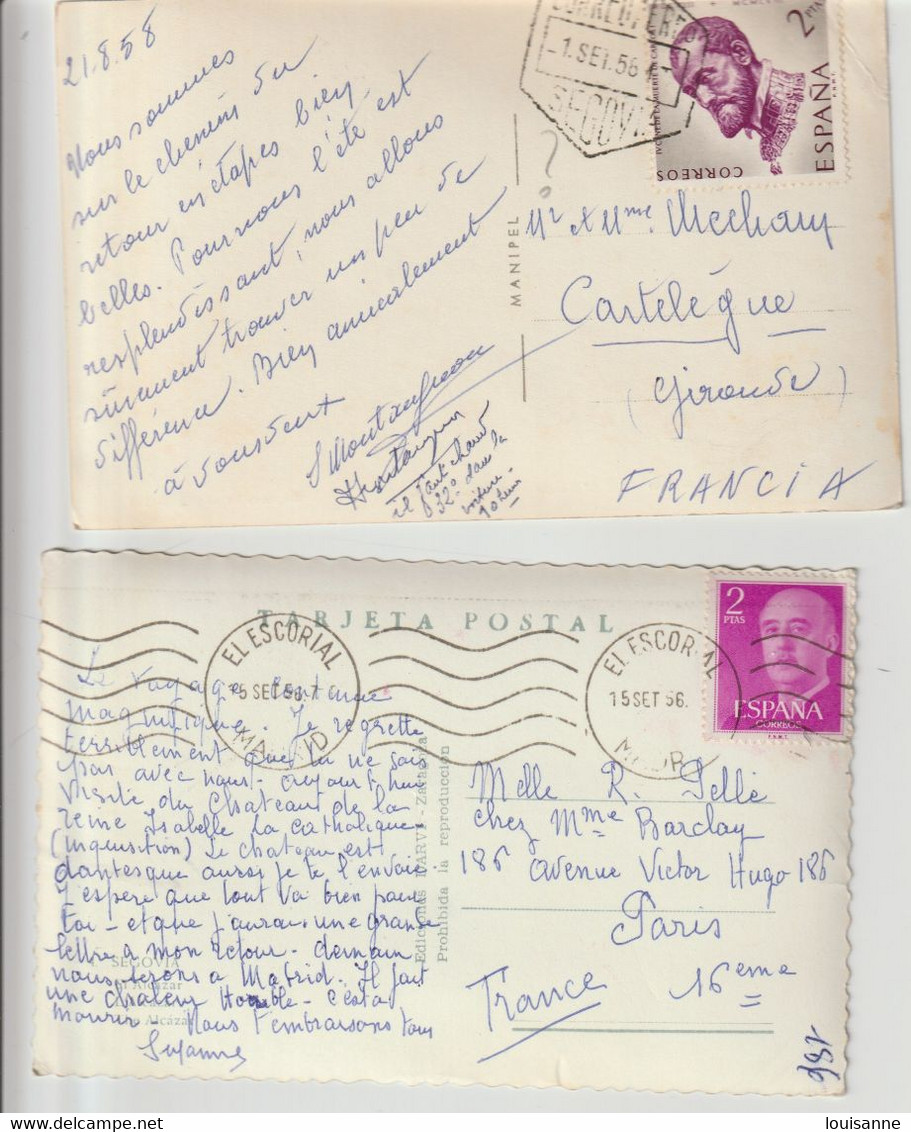 21.8.58
Nous sommes
sur le chemin du
retour en étapes bien
belles. Pour nous l'été est
resplendissant, nous allons
sûrement trouver un peu de
différence. Bien amicalement
à vous deux
il fait chaud
32° dans la
voiture
MANIPEL
?
CORREO AEREO
1. SET. 56
SEGOVIA
2 PTAS
ESPAÑA
CORREOS
F.N.M.T.
Mr & Mme Mechain
Cartelègue
(Gironde)
FRANCIA
TARJETA POSTAL
EL ESCORIAL
15 SET 56. 7
MADRID
EL ESCORIAL
15 SET 56.
MADR
2
PTAS
ESPAÑA
CORREOS
F.N.M.T.
Le voyage continue
magnifique. Je regrette
terriblement que tu ne sois
pas avec nous. aujourd'hui
visite du Chateau de la
reine Isabelle La Catholique
(inquisition) Le chateau est
dantesque aussi je te l'envoie.
J'espère que tout va bien pour
toi - et que j'aurai une grande
lettre a mon retour - demain
nous serons a Madrid. Il fait
une chaleur Horrible - c'est a
mourir - Nous t'embrassons tous
Suzanne
SEGOVIA
El Alcázar
Alcázar
Ediciones DARVI - Zaragoza
Prohibida la reproduccion
Melle R. Pellé
chez Mme Barclay
186 avenue Victor Hugo 186
Paris
16eme
France
186
louisanne